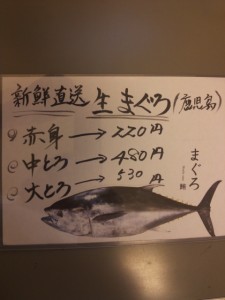 新鮮直送 生まぐろ(鹿児島)
赤身→220円
中とろ→480円
大とろ→530円
まぐろ